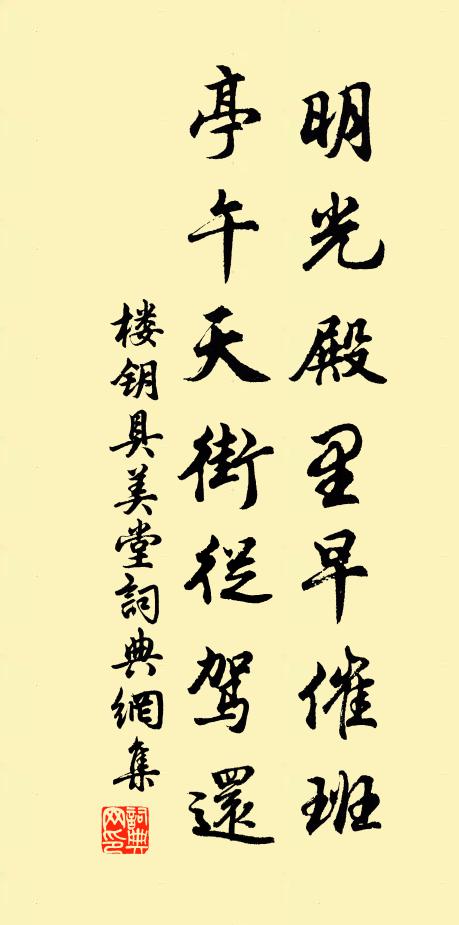 明光殿里早催班
亭午天街從駕還
楼钥具美堂詞典網集
詞典
网印